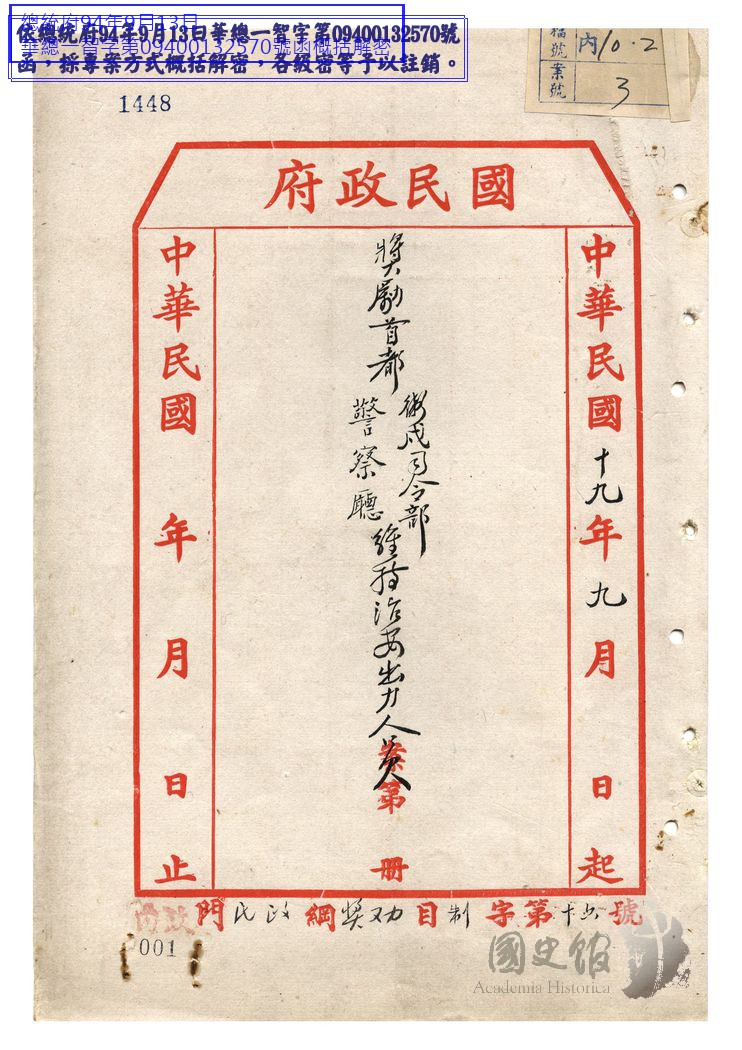 總統府94年9月13日
華總一智字第09400132570號函概括解密
依總統府94年9月13日華總一智字第09400132570號
函，採專案方式概括解密，各級密等予以註銷。
檔號 內10.2
案號 3
1448
府政民國
中華民國十九年九月 日起
獎勵首都衛戍司令部警察廳維持治安出力人員
案第 冊
中華民國 年 月 日止
內政門民政綱獎劝目制字第十六號
001
國史館
Academia Historica